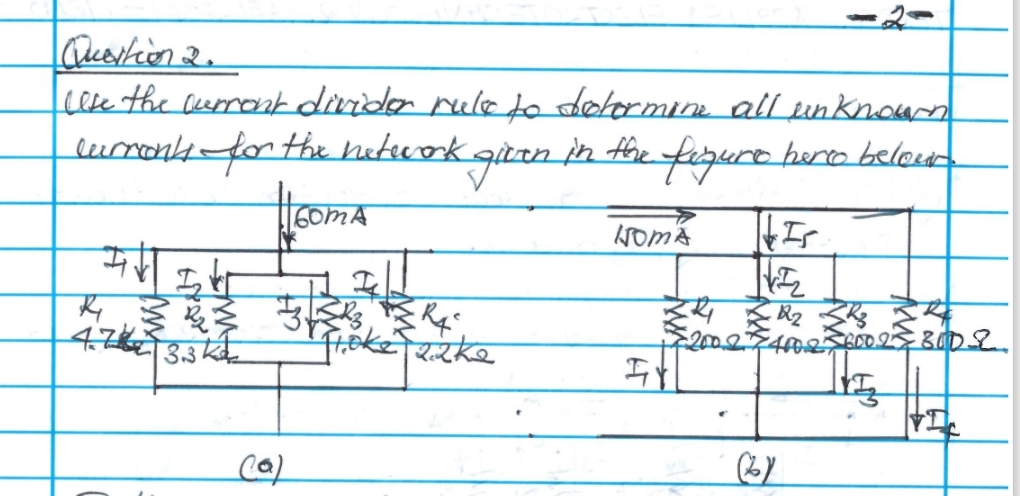 -2-
Question 2.
Use the current divider rule to determine all unknown
currents for the network given in the figure here below.
60mA
I1
I2
I3
I4
R1
4.7kΩ
R2
3.3kΩ
R3
1.0kΩ
R4
2.2kΩ
(a)
150mA
I5
I2
R1
200Ω
R2
400Ω
R3
600Ω
R4
300Ω
I1
I3
I4
(b)